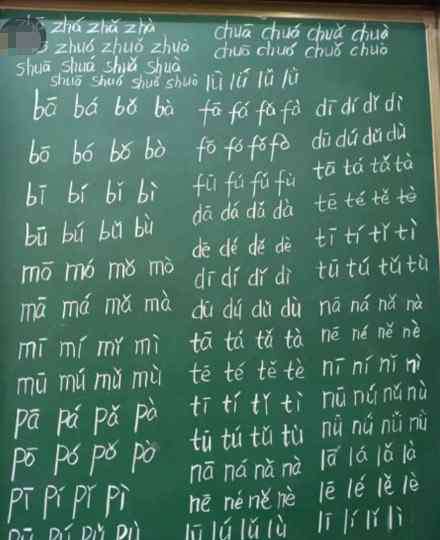 zhá zhǎ zhà
zhuó zhuǒ zhuò
shuā shuá shuǎ shuà
shuō shuó shuǒ shuò
chuā chuá chuǎ chuà
chuō chuó chuǒ chuò
lǖ lǘ lǚ lǜ
bā bá bǎ bà
bō bó bǒ bò
bī bí bǐ bì
bū bú bǔ bù
mō mó mǒ mò
mā má mǎ mà
mī mí mǐ mì
mū mú mǔ mù
pā pá pǎ pà
pō pó pǒ pò
pī pí pǐ pì
pū pú pǔ pù
fā fá fǎ fà
fō fó fǒ fò
fū fú fǔ fù
dā dá dǎ dà
dē dé dě dè
dī dí dǐ dì
dū dú dǔ dù
tā tá tǎ tà
tē té tě tè
tī tí tǐ tì
tū tú tǔ tù
nā ná nǎ nà
nē né ně nè
lū lú lǔ lù
dī dí dǐ dì
dū dú dǔ dù
tā tá tǎ tà
tē té tě tè
tī tí tǐ tì
tū tú tǔ tù
nā ná nǎ nà
nē né ně nè
nī ní nǐ nì
nū nú nǔ nù
nǖ nǘ nǚ nǜ
lā lá lǎ là
lē lé lě lè
lī lí lǐ lì